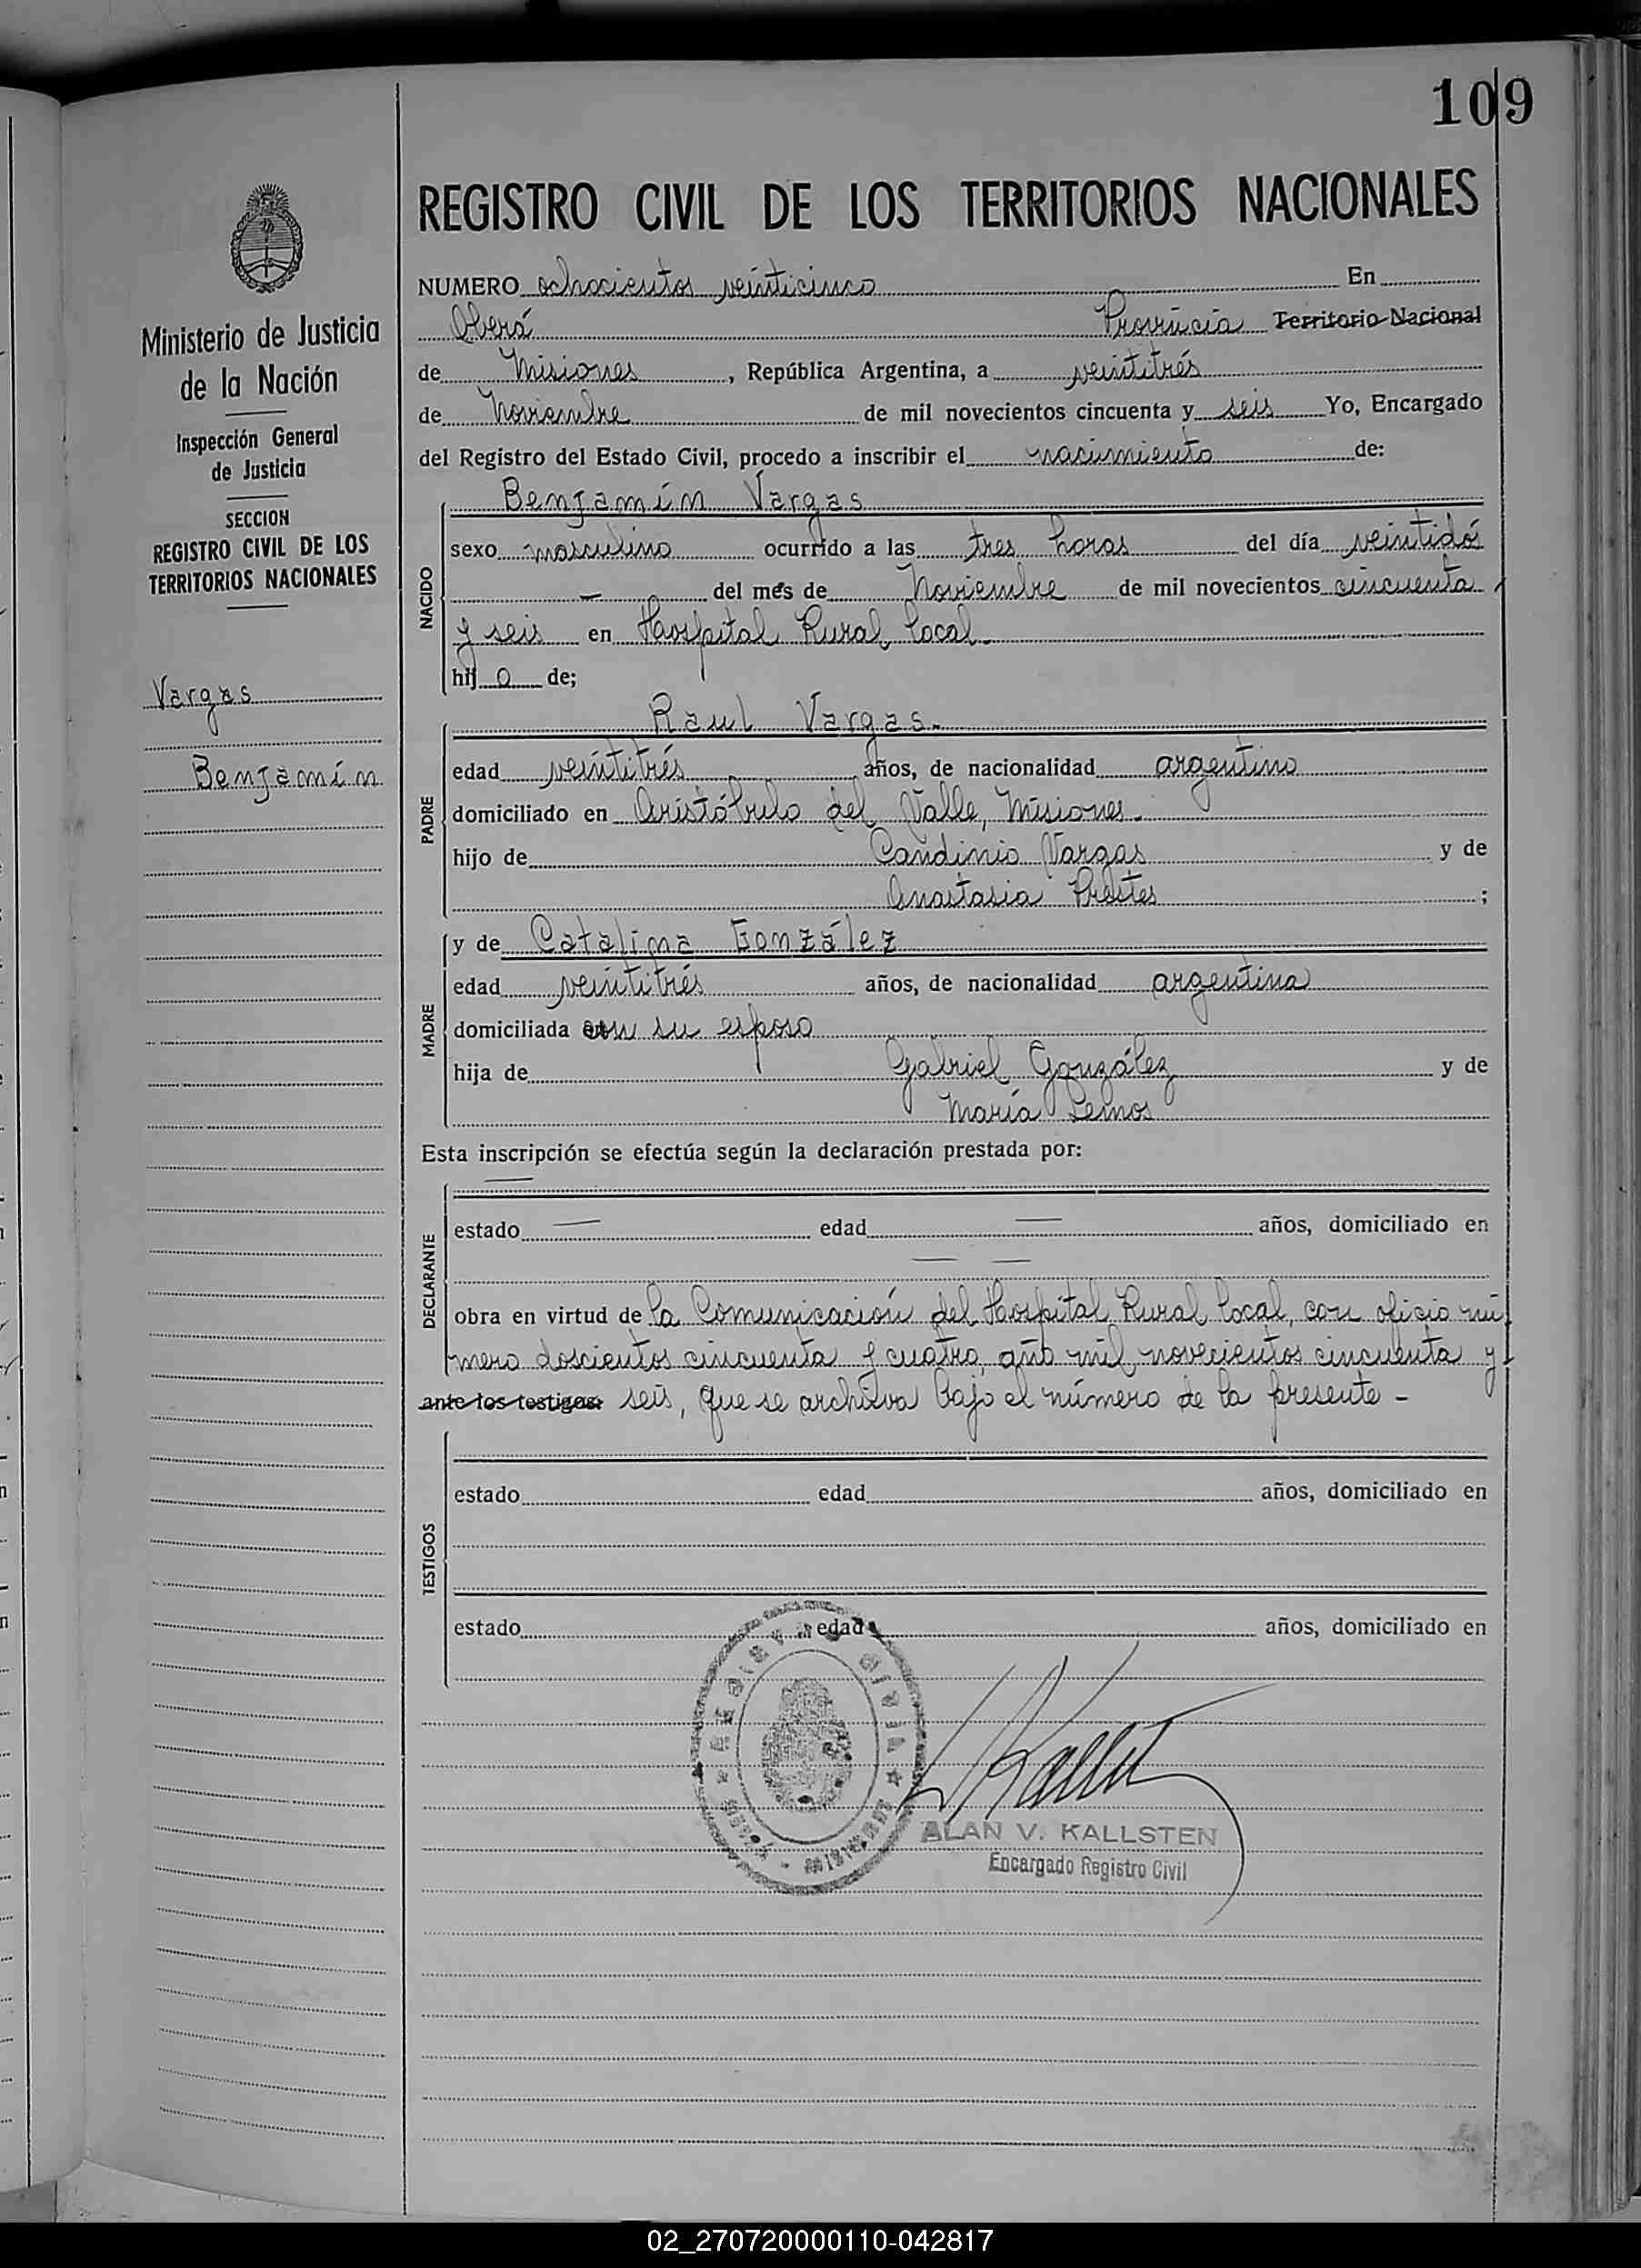 109
REGISTRO CIVIL DE LOS TERRITORIOS NACIONALES
Ministerio de Justicia
de la Nación
Inspección General
de Justicia
SECCION
REGISTRO CIVIL DE LOS
TERRITORIOS NACIONALES
Vargas
Benjamín
NUMERO ochocientos veinticinco En
Oberá Provincia Territorio Nacional
de Misiones, República Argentina, a veintitrés
de Noviembre de mil novecientos cincuenta y seis Yo, Encargado
del Registro del Estado Civil, procedo a inscribir el nacimiento de:
NACIDO
Benjamín Vargas
sexo masculino ocurrido a las tres horas del día veintidós
— del mes de Noviembre de mil novecientos cincuenta
y seis en Hospital Rural Local.
hij o de;
PADRE
Raul Vargas.-
edad veintitrés años, de nacionalidad argentino
domiciliado en Aristóbulo del Valle, Misiones.
hijo de Candinio Vargas y de
Anastasia Prestes ;
MADRE
y de Catalina González
edad veintitrés años, de nacionalidad argentina
domiciliada con su esposo
hija de Gabriel González y de
María Lemos
Esta inscripción se efectúa según la declaración prestada por:
DECLARANTE
—
estado — edad — años, domiciliado en
— —
obra en virtud de la Comunicación del Hospital Rural Local, con oficio nú
mero doscientos cincuenta y cuatro, año mil novecientos cincuenta y
ante los testigos: seis, que se archiva bajo el número de la presente -
TESTIGOS
estado edad años, domiciliado en
estado edad años, domiciliado en
REGISTRO CIVIL
MISIONES
ALAN V. KALLSTEN
Encargado Registro Civil
02_270720000110-042817